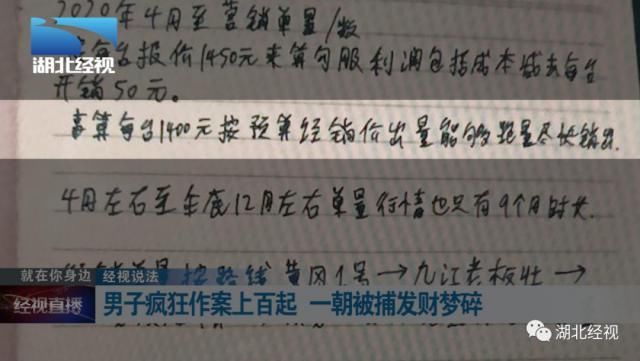 2020年4月至营销单量/数
湖北经视
每台报价1450元来算包服利润包括成本减去每台
开销50元。
预算每台1400元按预算经销价出量能够跑量尽快销出.
4月左右至年底12月左右单量行情也只有9个月时长.
按路线黄冈1号→九江老板壮→
就在你身边 经视说法
经视直播
男子疯狂作案上百起 一朝被捕发财梦碎
湖北经视